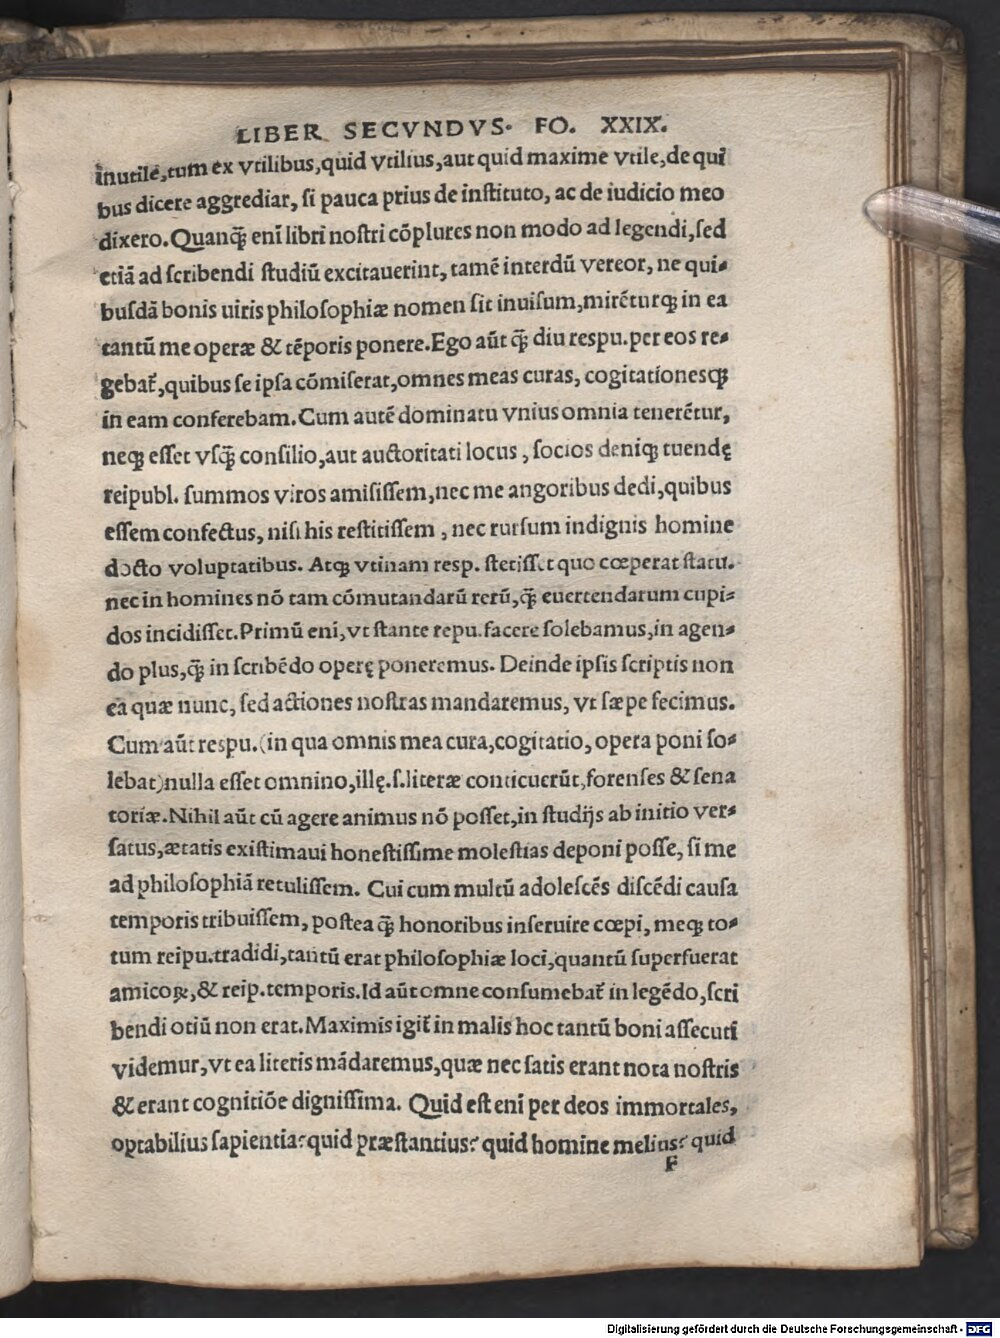 LIBER SECVNDVS. FO. XXIX.
inutile, tum ex vtilibus, quid vtilius, aut quid maxime vtile, de qui
bus dicere aggrediar, si pauca prius de instituto, ac de iudicio meo
dixero. Quanq̃ enī libri nostri cōplures non modo ad legendi, sed
etiā ad scribendi studiū excitauerint, tamē interdū vereor, ne qui-
busdā bonis uiris philosophiæ nomen sit inuisum, mirēturq; in ea
tantū me operæ & tēporis ponere. Ego aūt q̃ diu respu. per eos re-
gebat̃, quibus se ipsa cōmiserat, omnes meas curas, cogitationesq;
in eam conferebam. Cum autē dominatu vnius omnia tenerētur,
neq; esset vsq̃ consilio, aut auctoritati locus, socios deniq; tuendę
reipubl. summos viros amisissem, nec me angoribus dedi, quibus
essem confectus, nisi his restitissem, nec rursum indignis homine
docto voluptatibus. Atq; vtinam resp. stetisset quo cœperat statu.
nec in homines nō tam cōmutandarū rerū, q̃ euertendarum cupi-
dos incidisset. Primū eni, vt stante repu. facere solebamus, in agen-
do plus, q̃ in scribēdo operę poneremus. Deinde ipsis scriptis non
ea quæ nunc, sed actiones nostras mandaremus, vt sæpe fecimus.
Cum aūt respu. (in qua omnis mea cura, cogitatio, opera poni so-
lebat) nulla esset omnino, illę .s. literæ conticuerūt, forenses & sena
toriæ. Nihil aūt cū agere animus nō posset, in studijs ab initio ver-
satus, ætatis existimaui honestissime molestias deponi posse, si me
ad philosophiā retulissem. Cui cum multū adolescēs discēdi causa
temporis tribuissem, postea q̃ honoribus inseruire cœpi, meq; to-
tum reipu. tradidi, tantū erat philosophiæ loci, quantū superfuerat
amicoꝝ, & reip. temporis. Id aūt omne consumebat̃ in legēdo, scri
bendi otiū non erat. Maximis igit̃ in malis hoc tantū boni assecuti
videmur, vt ea literis mādaremus, quæ nec satis erant nota nostris
& erant cognitiōe dignissima. Quid est enī per deos immortales,
optabilius sapientia? quid præstantius? quid homine melius? quid
F
Digitalisierung gefördert durch die Deutsche Forschungsgemeinschaft - DFG